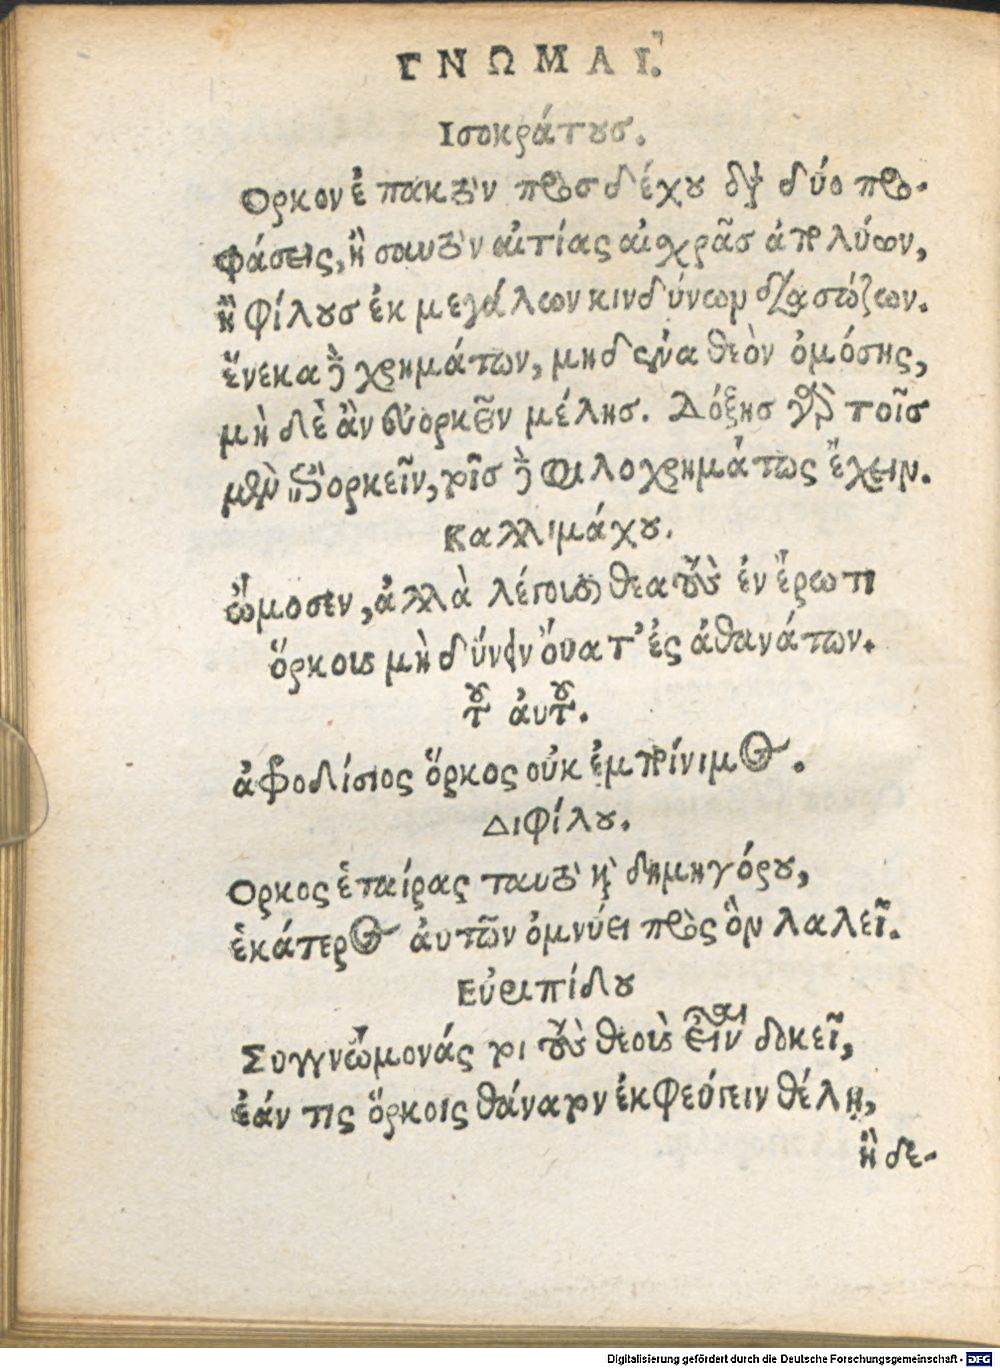 ΓΝΩΜΑΙ.
Ισοκράτους.
Ορκον ἐπακτὸν προσδέχου διὰ δύο προ-
φάσεις, ἢ σαυτὸν αἰτίας αἰσχρᾶς ἀπολύων,
ἢ φίλους ἐκ μεγάλων κινδύνων διασώζων.
ἕνεκα δὲ χρημάτων, μηδένα θεὸν ὀμόσῃς,
μὴ δὲ ἂν εὐορκεῖν μέλῃς. Δόξῃς γὰρ τοῖς
μὲν ἐπιορκεῖν, τοῖς δὲ φιλοχρημάτως ἔχειν.
Καλλιμάχου.
ὤμοσεν, ἀλλὰ λέγουσι θεα τοὺς ἐν ἔρωτι
ὅρκους μὴ δύνειν οὔατ' ἐς ἀθανάτων.
τοῦ αὐτοῦ.
ἀφροδίσιος ὅρκος οὐκ ἐμποίνιμος.
Διφίλου.
Ορκος ἑταίρας ταυτὸ καὶ δημηγόρου,
ἑκάτερος αὐτῶν ὀμνύει πρὸς ὃν λαλεῖ.
Εὐριπίδου
Συγγνώμονάς τοι τοὺς θεοὺς εἶναι δοκεῖ,
ἐάν τις ὅρκοις θάνατον ἐκφεύγειν θέλῃ,
ἢ δε-
Digitalisierung gefördert durch die Deutsche Forschungsgemeinschaft - DFG